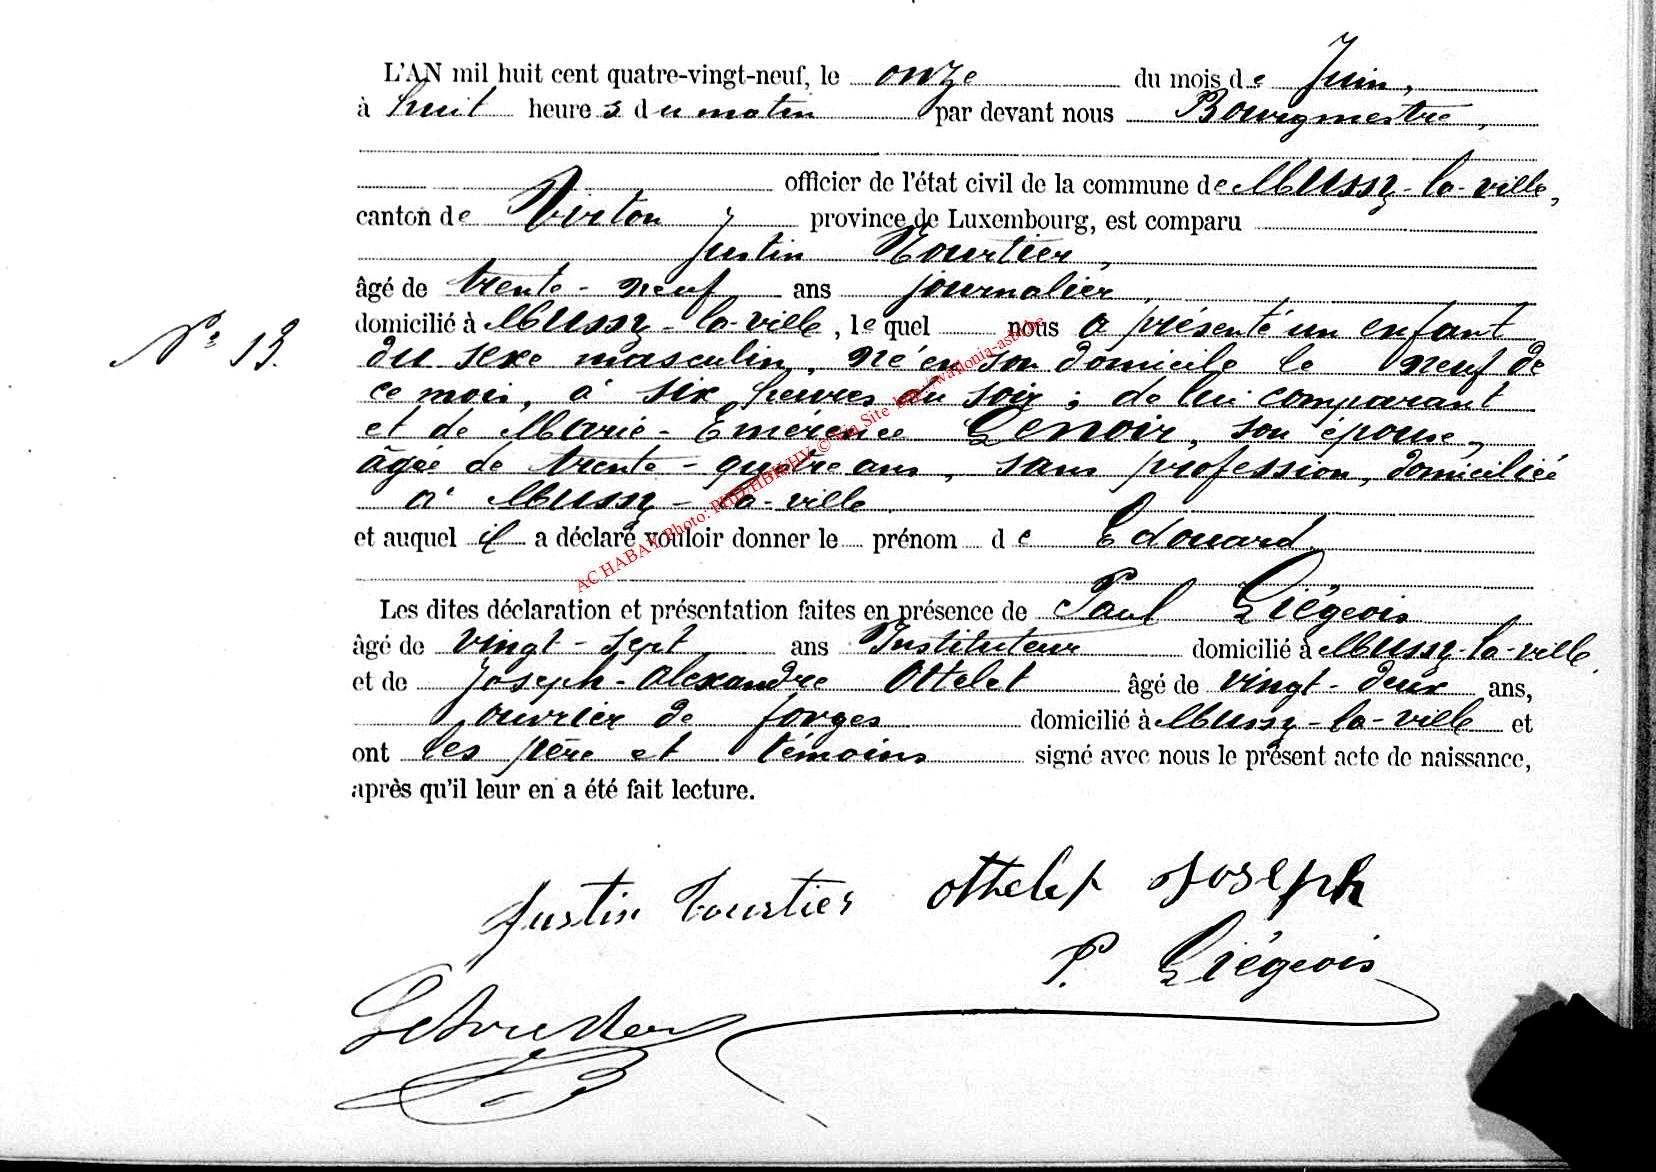 L'AN mil huit cent quatre-vingt-neuf, le onze du mois de Juin,
à huit heures du matin par devant nous Bourgmestre,
officier de l'état civil de la commune de Mussy-la-ville,
canton de Virton, province de Luxembourg, est comparu
Justin Tourtier,
âgé de trente-neuf ans journalier,
N° 13.
domicilié à Mussy-la-ville, lequel nous a présenté un enfant
du sexe masculin, né en son domicile le neuf de
ce mois, à six heures du soir; de lui comparant
et de Marie-Emérence Lenoir, son épouse,
âgée de trente-quatre ans, sans profession, domiciliée
à Mussy-la-ville.
et auquel il a déclaré vouloir donner le prénom de Edouard.
Les dites déclaration et présentation faites en présence de Paul Liégeois
âgé de vingt-sept ans Instituteur domicilié à Mussy-la-ville,
et de Joseph-Alexandre Ottelet âgé de vingt-deux ans,
ouvrier de forges domicilié à Mussy-la-ville et
ont les père et témoins signé avec nous le présent acte de naissance,
après qu'il leur en a été fait lecture.
AC HABAY Photo: PHD/HBR/HV © Via Site http://wallonia-asbl.be
Justin Tourtier Ottelet Joseph
P. Liégeois